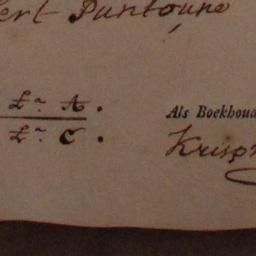 ert Puntoune
Lra A.
Lra C.
Als Boekhoud
Krisp